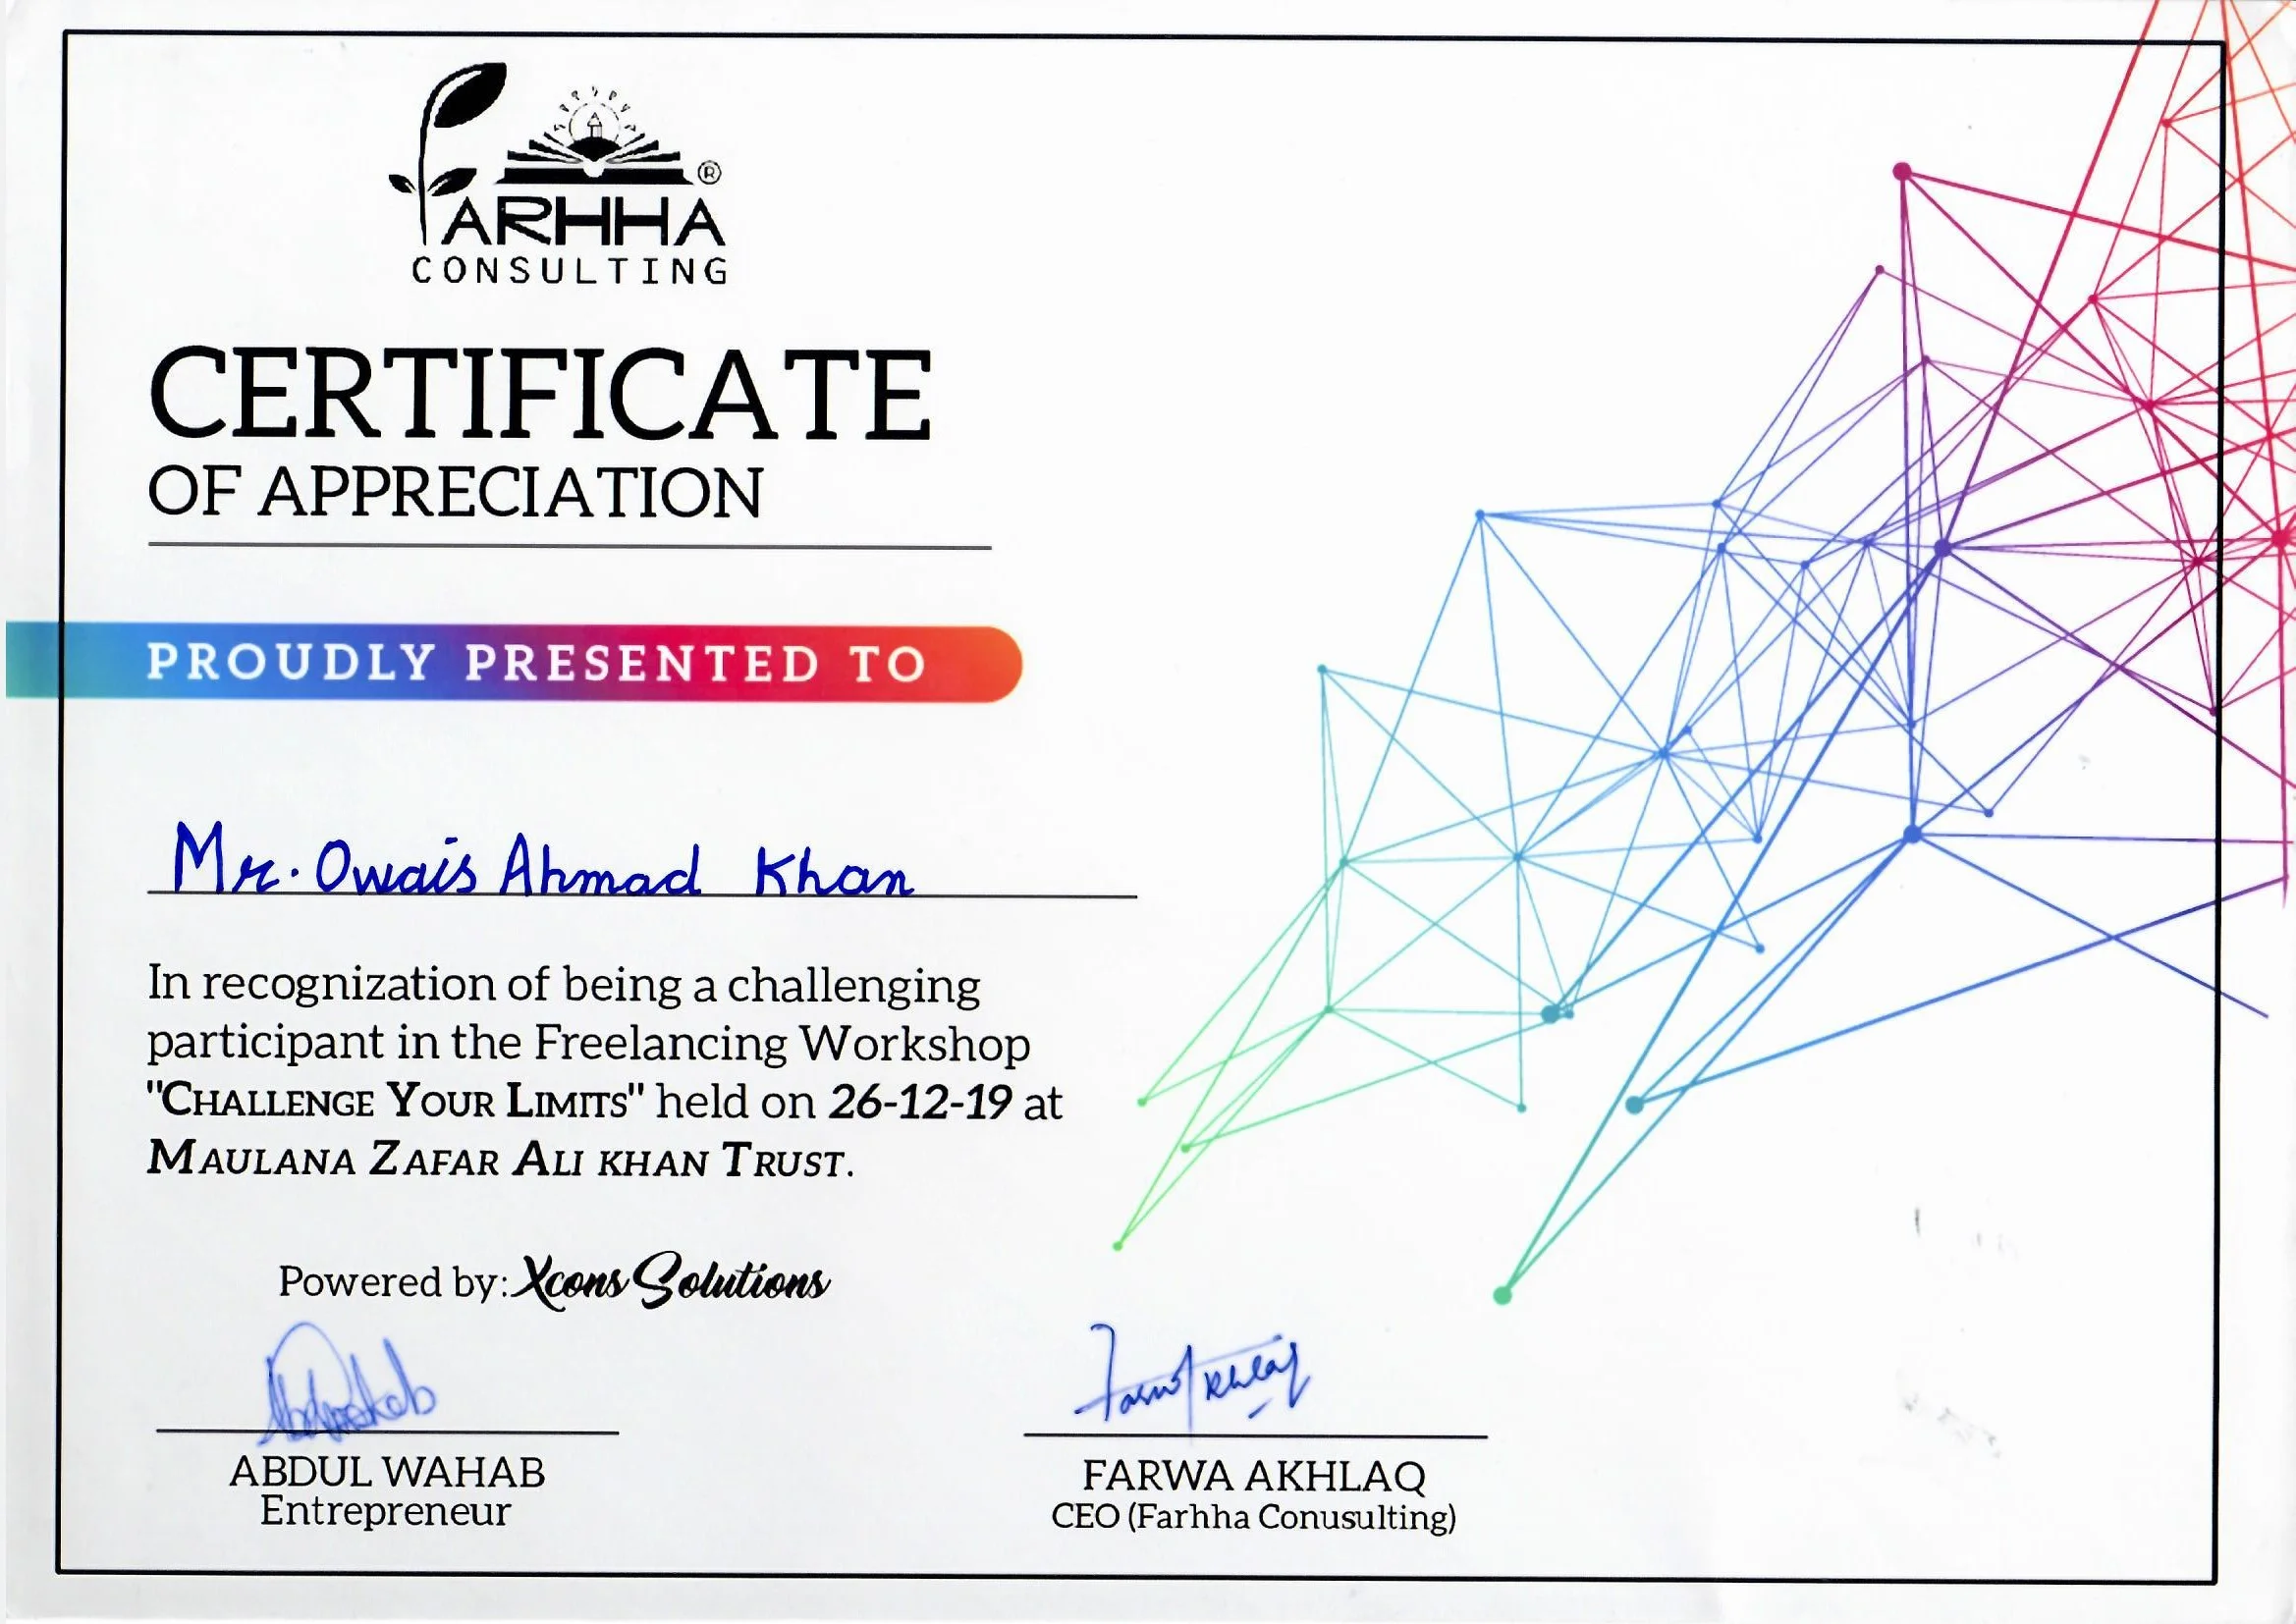 FARHHA ®
CONSULTING
CERTIFICATE
OF APPRECIATION
PROUDLY PRESENTED TO
Mr. Owais Ahmad Khan
In recognization of being a challenging
participant in the Freelancing Workshop
"CHALLENGE YOUR LIMITS" held on 26-12-19 at
MAULANA ZAFAR ALI KHAN TRUST.
Powered by: Xcons Solutions
Abdul Wahab
Farwa Akhlaq
ABDUL WAHAB
Entrepreneur
FARWA AKHLAQ
CEO (Farhha Conusulting)